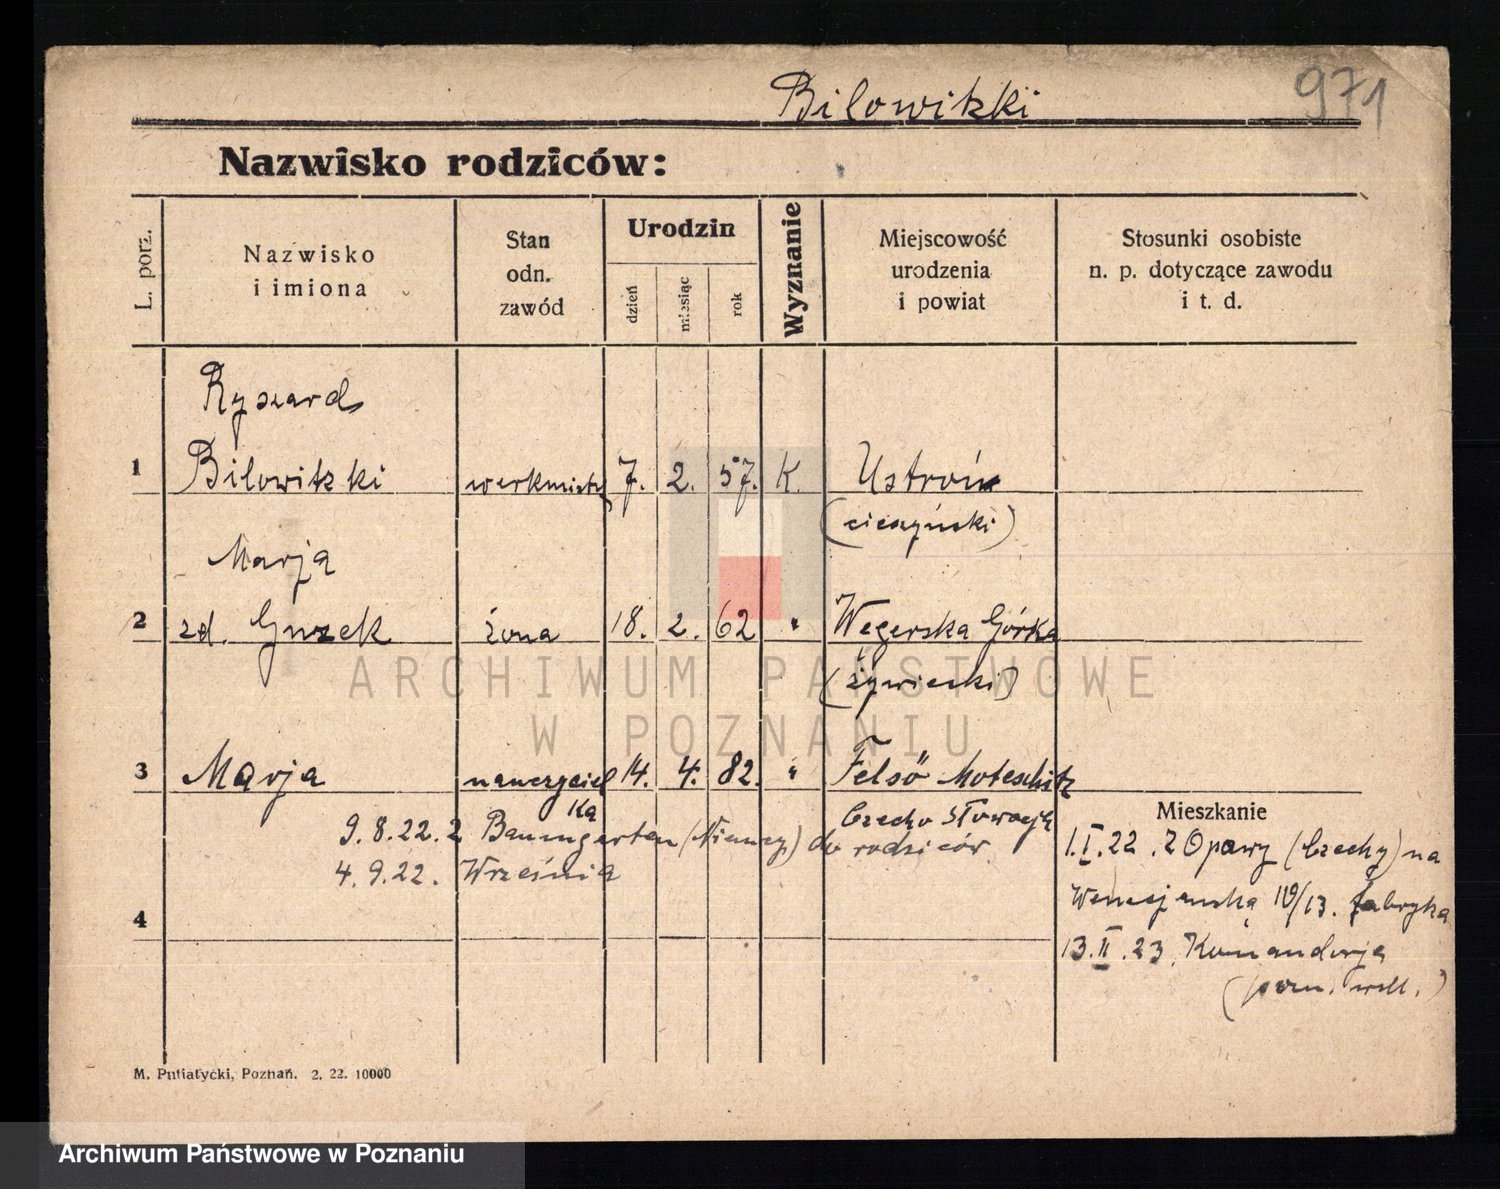 Bilowitzki
971
Nazwisko rodziców:
L. porz.
Nazwisko
i imiona
Stan
odn.
zawód
Urodzin
dzień
miesiąc
rok
Wyznanie
Miejscowość
urodzenia
i powiat
Stosunki osobiste
n. p. dotyczące zawodu
i t. d.
Ryszard
1 Bilowitzki werkmistrz 7. 2. 57. K. Ustroń
(cieszyński)
Marja
2 zd. Guzek żona 18. 2. 62 " Węgerska Górka
(żywiecki)
3 Marja nauczyciel 14. 4. 82. " Felsö Moteschitz
ka
Czecho Słowacja
9.8.22. z Baumgarten (Niemcy) do rodziców
4.9.22. Września
4
Mieszkanie
1.I.22. z Opawy (Czechy) na
10/13. fabryka
13.II.23. Komandorja
M. Putiatycki, Poznań. 2. 22. 10000
ARCHIWUM PAŃSTWOWE
W POZNANIU
Archiwum Państwowe w Poznaniu